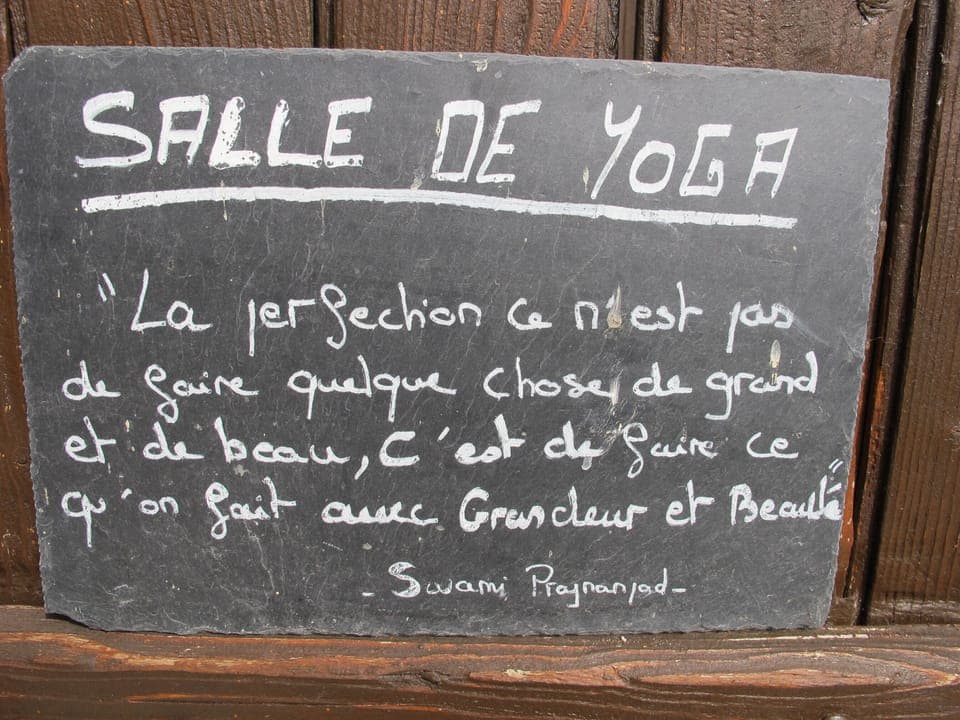 SALLE DE YOGA
"La perfection ce n'est pas
de faire quelque chose de grand
et de beau, C'est de faire ce
qu'on fait avec Grandeur et Beauté"
- Swami Prajnanpad -